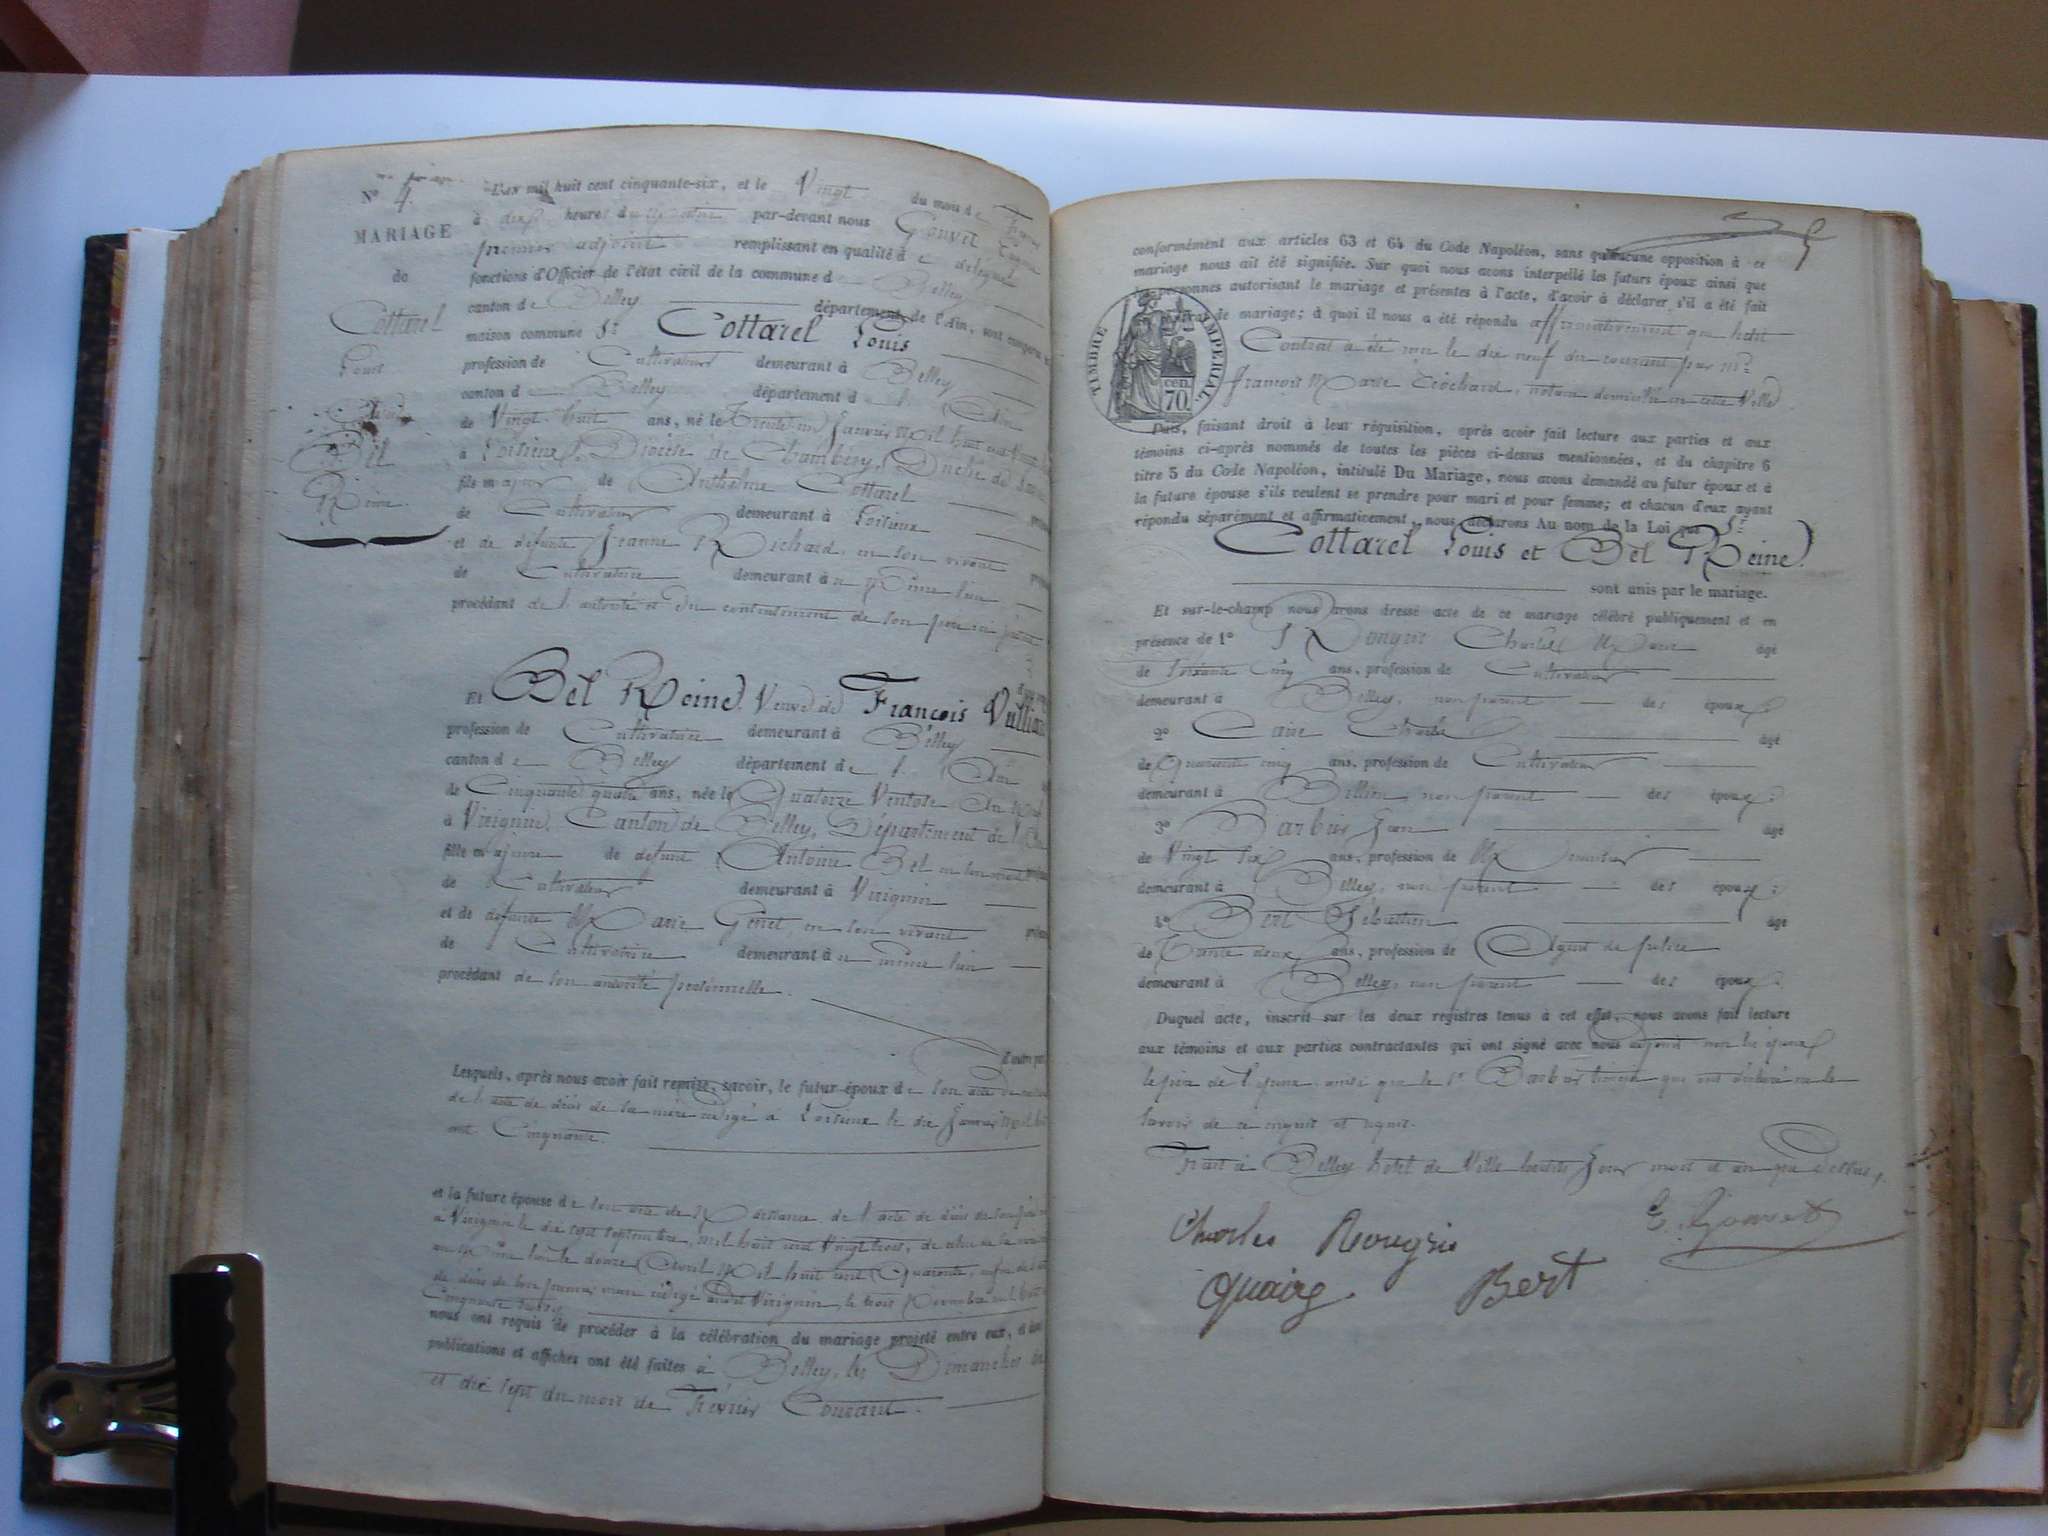 N° 4.
MARIAGE
de
Cottarel
Louis
Bel
Reine.
L'an mil huit cent cinquante-six, et le Vingt du mois de
à heures du par-devant nous Gouvet
premier adjoint remplissant en qualité de délégué
fonctions d'Officier de l'état civil de la commune de Belley
canton de Belley département de l'Ain, sont comparus
maison commune Sr Cottarel Louis
profession de Cultivateur demeurant à Belley
canton de Belley département de l'Ain
de Vingt huit ans, né le Trente un Janvier Mil huit cent
à Loisieux, Diocèse de Chambéry, Duché de Savoie
fils majeur de Anthelme Cottarel
de Cultivateur demeurant à Loisieux
et de défunte Jeanne Richard, en son vivant
de Cultivatrice demeurant au même lieu
procédant de l'autorité et du consentement de son père ici présent
Et Bel Reine, Veuve de François
profession de Cultivatrice demeurant à Belley
canton de Belley département de l'Ain
de Cinquante quatre ans, née le Quatorze Ventose An
à Virignin, Canton de Belley, Département de l'Ain
fille majeure de défunt Antoine Bel en son vivant
de Cultivateur demeurant à Virignin
et de défunte Marie Genet, en son vivant
de Cultivatrice demeurant au même lieu
procédant de son autorité personnelle.
d'autre part
Lesquels, après nous avoir fait remise, savoir, le futur époux de son acte de
de l'acte de décès de sa mère rédigé à Loisieux le dix Janvier Mil huit
cent Cinquante.
et la future épouse de son acte de Naissance, de l'acte de décès de son père
à Virignin le dix sept Septembre, mil huit cent Vingt trois, de celui de sa mère
au même lieu le douze Avril Mil huit cent Quarante, enfin de l'acte
de décès de son premier mari rédigé audit Virignin, le trois
Cinquante
nous ont requis de procéder à la célébration du mariage projeté entre eux, et dont
publications et affiches ont été faites à Belley, les Dimanches dix
et dix sept du mois de Février Courant.
conformément aux articles 63 et 64 du Code Napoléon, sans qu'aucune opposition à ce
mariage nous ait été signifiée. Sur quoi nous avons interpellé les futurs époux ainsi que
les personnes autorisant le mariage et présentes à l'acte, d'avoir à déclarer s'il a été fait
contrat de mariage; à quoi il nous a été répondu affirmativement que ledit
Contrat a été reçu le dix neuf du courant par Me
François Marie notaire domicilié en cette Ville.
TIMBRE IMPERIAL
cen.
70.
Puis, faisant droit à leur réquisition, après avoir fait lecture aux parties et aux
témoins ci-après nommés de toutes les pièces ci-dessus mentionnées, et du chapitre 6
titre 5 du Code Napoléon, intitulé Du Mariage, nous avons demandé au futur époux et à
la future épouse s'ils veulent se prendre pour mari et pour femme; et chacun d'eux ayant
répondu séparément et affirmativement, nous déclarons Au nom de la Loi que Sr
Cottarel Louis et Bel Reine
sont unis par le mariage.
Et sur-le-champ nous avons dressé acte de ce mariage célébré publiquement et en
présence de 1° Rougric Charles Marie âgé
de Soixante Cinq ans, profession de Cultivateur
demeurant à Belley, non parent des époux;
2° Caire Charles âgé
de Quarante cinq ans, profession de Cultivateur
demeurant à Billieu non parent des époux;
3° Barbier Jean âgé
de Vingt six ans, profession de Menuisier
demeurant à Belley, non parent des époux;
4° Bert Sébastien âgé
de Trente deux ans, profession de Agent de police
demeurant à Belley, non parent des époux.
Duquel acte, inscrit sur les deux registres tenus à cet effet, nous avons fait lecture
aux témoins et aux parties contractantes qui ont signé avec nous adjoint non les époux
le père de l'époux, ainsi que le Sr Barbier témoin qui ont déclaré ne le
savoir de ce enquis et requis.
Fait à Belley hotel de Ville lesdits jour mois et an que dessus,
Charles Rougric
E. Gouvet
Quaire
Bert